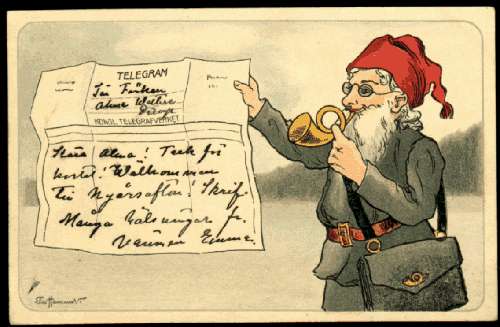 TELEGRAM
Till Fröken
Alma
KONGL. TELEGRAFVERKET
Kära Alma! Tack för
kortet! Wälkommen
till Nyårsafton! Skrif
Många hälsningar fr.
vännen Emma.